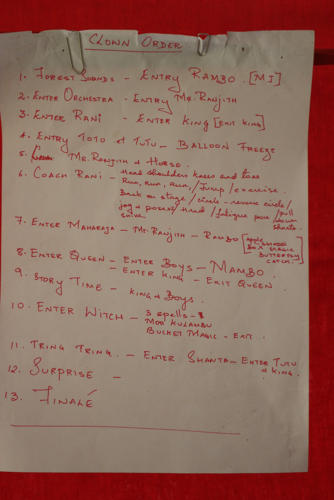 CLOWN ORDER
1. FOREST SOUNDS - ENTRY RAMBO. [MJ]
2. ENTER ORCHESTRA - ENTRY MR. RANJITH
3. ENTER RANI - ENTER KING [EXIT KING]
4. ENTRY TOTO & TUTU - BALLOON FREEZE
5. MR. RANJITH & HORSE.
6. COACH RANI - Head shoulders knees and toes
Run, run, run / Jump / exercise
Back on stage / circle - reverse circle /
jog & poses / Hand / fatigue pose / pull
down
shorts.
7. ENTER MAHARAJA - MR. RANJITH - RAMBO
BOX MAGIC
BUTTERFLY
CATCH.
8. ENTER QUEEN - ENTER BOYS - MAMBO
- ENTER KING - EXIT QUEEN.
9. STORY TIME - KING & BOYS.
10. ENTER WITCH - 3 spells -
MOR KULAMBU
BUCKET MAGIC - EXIT.
11. TRING TRING. - ENTER SHANTA - ENTER TUTU
& KING.
12. SURPRISE -
13. FINALÉ